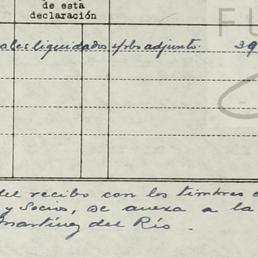 de esta
declaración
FU
ales liquidados s/rbo adjunto. 39
del recibo con los timbres
y Socios, se anexa a la
Martínez del Río.